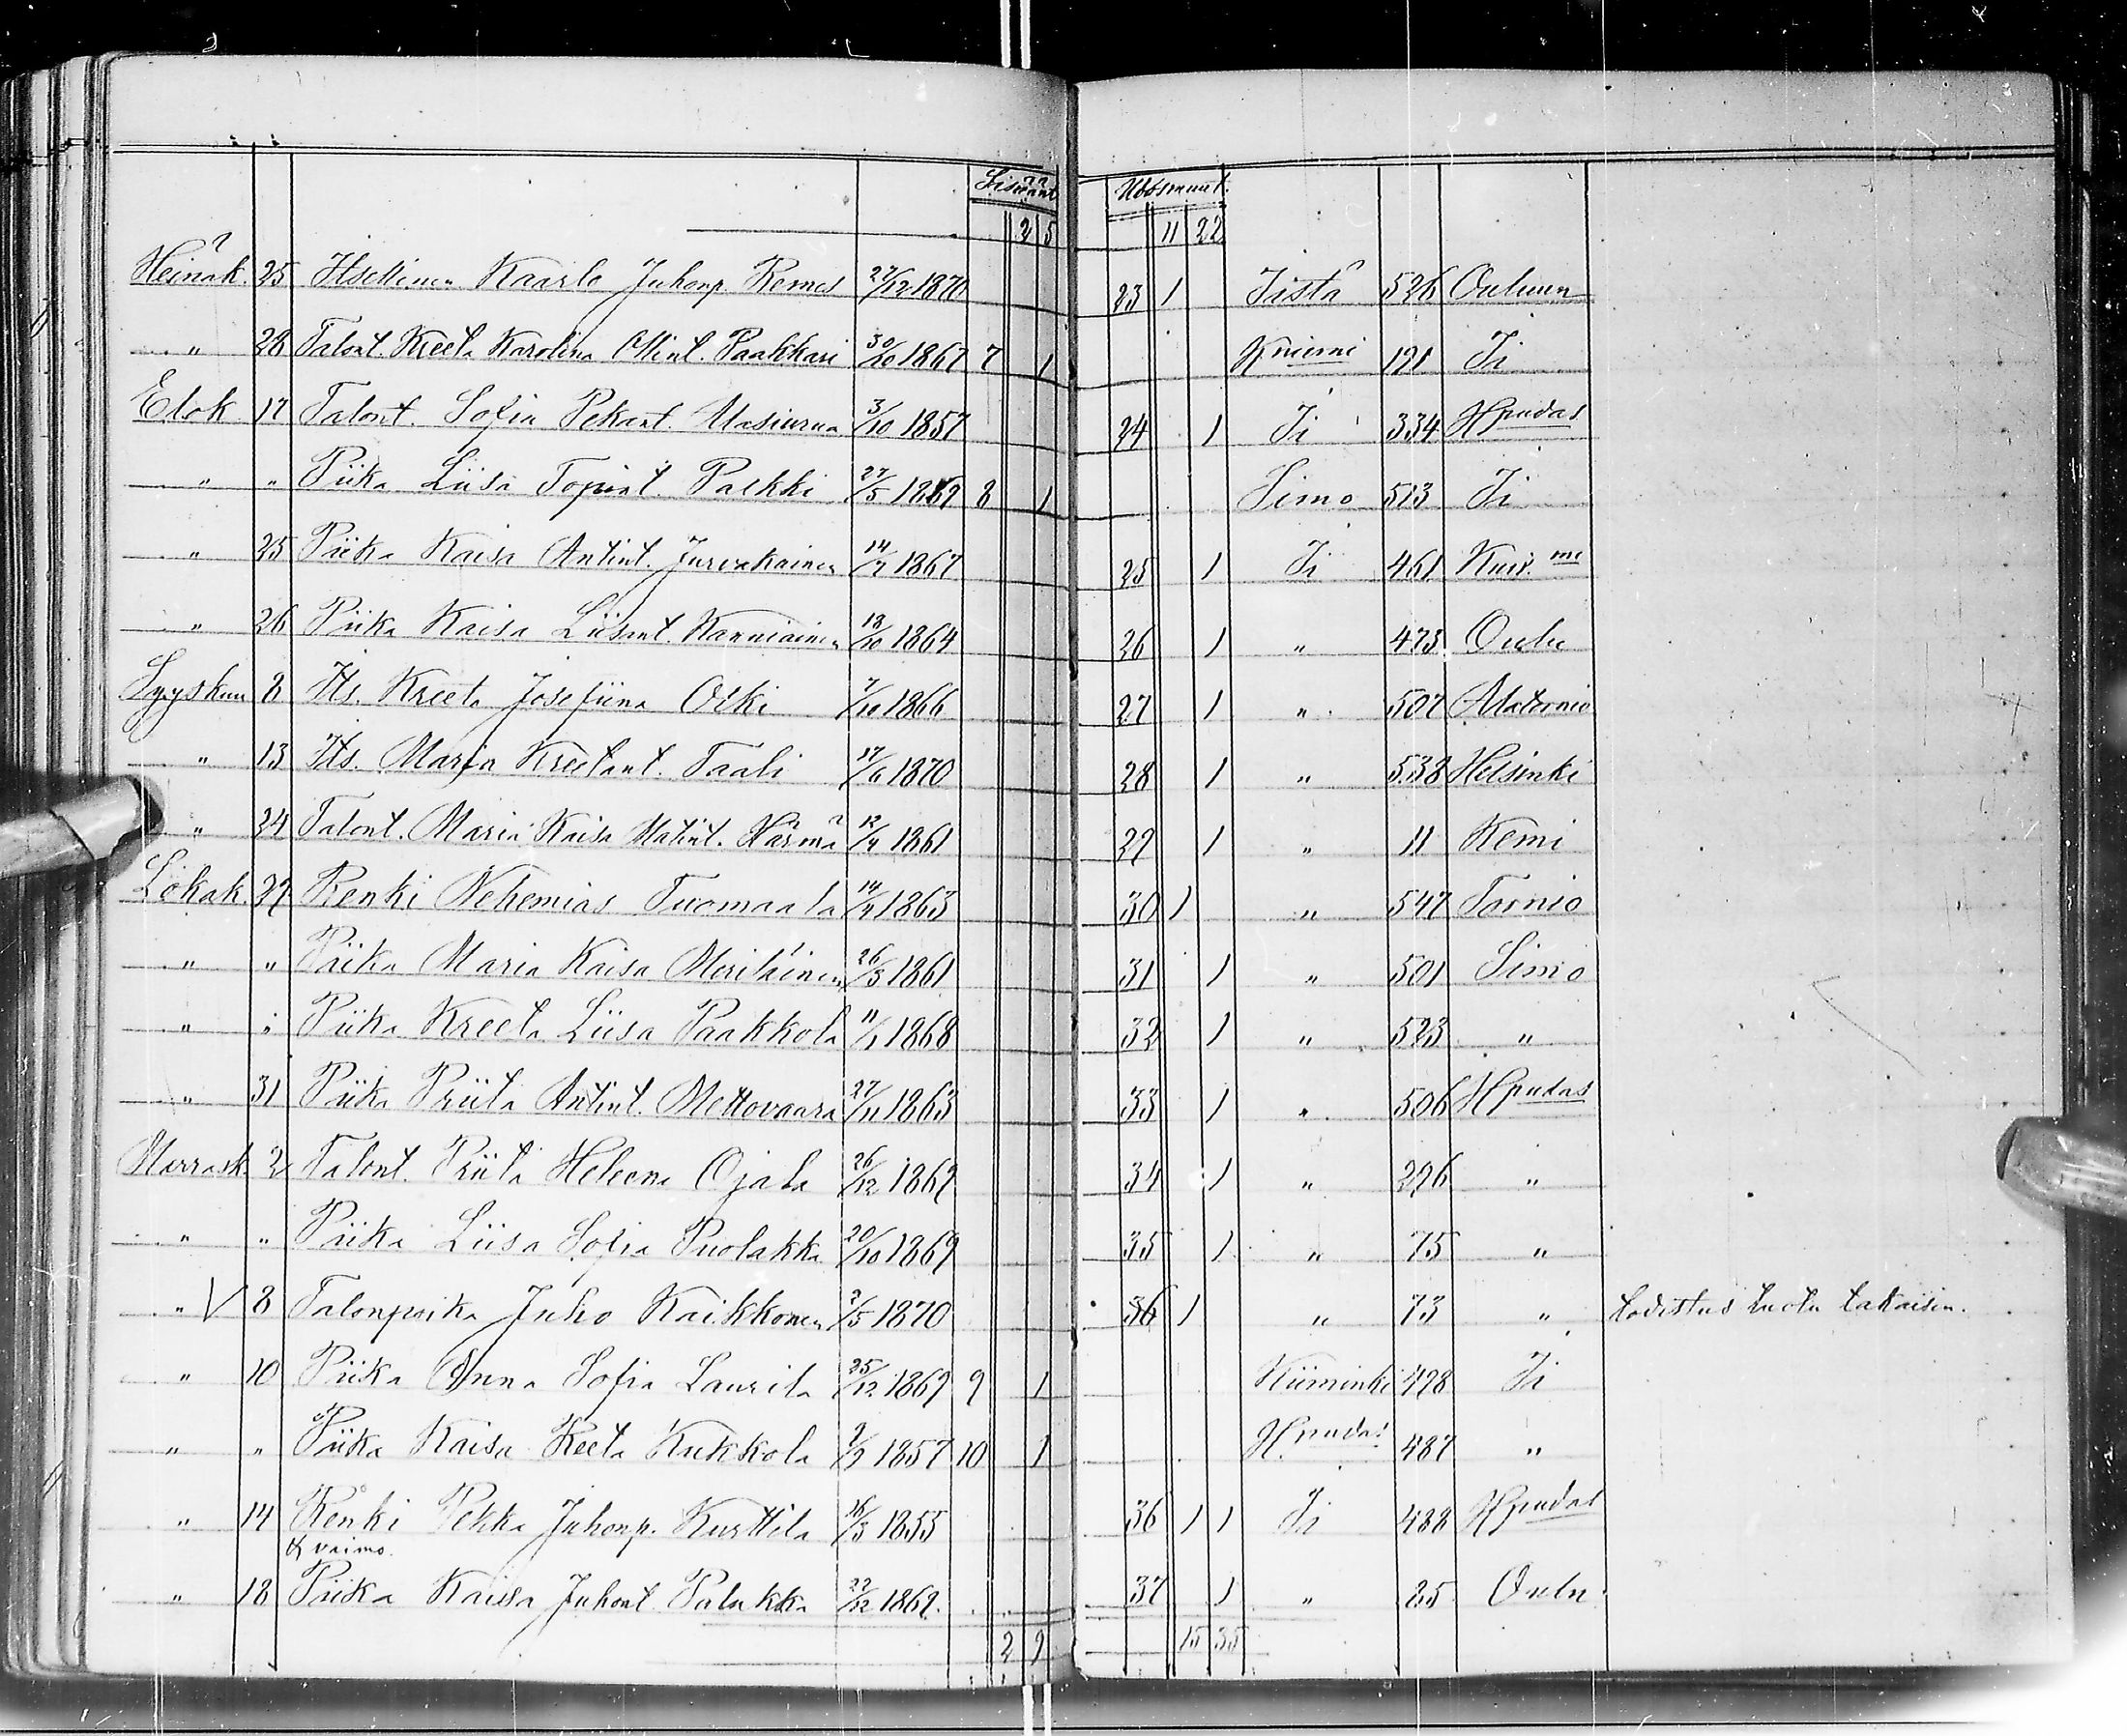 Sisäänt Ulosmuut.
2 5 11 22
Heinäk. 25 Itsekinen Kaarle Juhonp. Remes 27/12 1870 23 1 Iistä 526 Ouluun
" 28 Talont. Kreeta Karolina Mint. Paakkari 30/10 1867 7 1 Kniemi 191 Ii
Elok 17 Talont. Sofia Pekant. 3/10 1857 24 1 Ii 334 Hpudas
" " Piika Liisa Topiant. Palkki 27/5 1869 8 1 Simo 513 Ii
" 25 Piika Kaisa Antint. Jurvakainen 14/7 1867 25 1 Ii 461 Kuiv.mi
" 26 Piika Kaisa Liisant. Kanniainen 18/10 1864 26 1 " 473 Oulu
Syyskuu 8 Its. Kreeta Josefiina Oski 7/10 1866 27 1 " 507 Alatornio
" 13 Its. Marja Kreetant. Taali 17/6 1870 28 1 " 538 Helsinki
" 24 Talont. Maria Kaisa Matint. Härmä 12/4 1861 29 1 " 11 Kemi
Lokak. 27 Renki Nehemias Tuomaala 14/4 1863 30 1 " 547 Tornio
" " Piika Maria Kaisa Meriläinen 26/3 1861 31 1 " 501 Simo
" " Piika Kreeta Liisa Paakkola 11/1 1868 32 1 " 523 "
" 31 Piika Priita Antint. Mettovaara 27/11 1863 33 1 " 506 Hpudas
Marrask 2 Talont. Priita Heleena Ojala 26/12 1869 34 1 " 296 "
" " Piika Liisa Sofia Puolakka 20/10 1869 35 1 " 75 "
" V 8 Talonpoika Juho Kaikkonen 2/5 1870 36 1 " 73 " todistus tuotu takaisin.
" 10 Piika Anna Sofia Laurila 25/12 1869 9 1 Kiiminki 498 Ii
" " Piika Kaisa Reeta Kukkola 9/9 1857 10 1 H.pudas 487 "
" 14 Renki Pekka Juhonp. Kurttila 16/3 1855 36 1 1 Ii 488 Hpudas
& vaimo.
" 18 Piika Kaisa Juhont. Palukka 22/12 1869. 37 1 " 85 Oulu
2 9 15 35